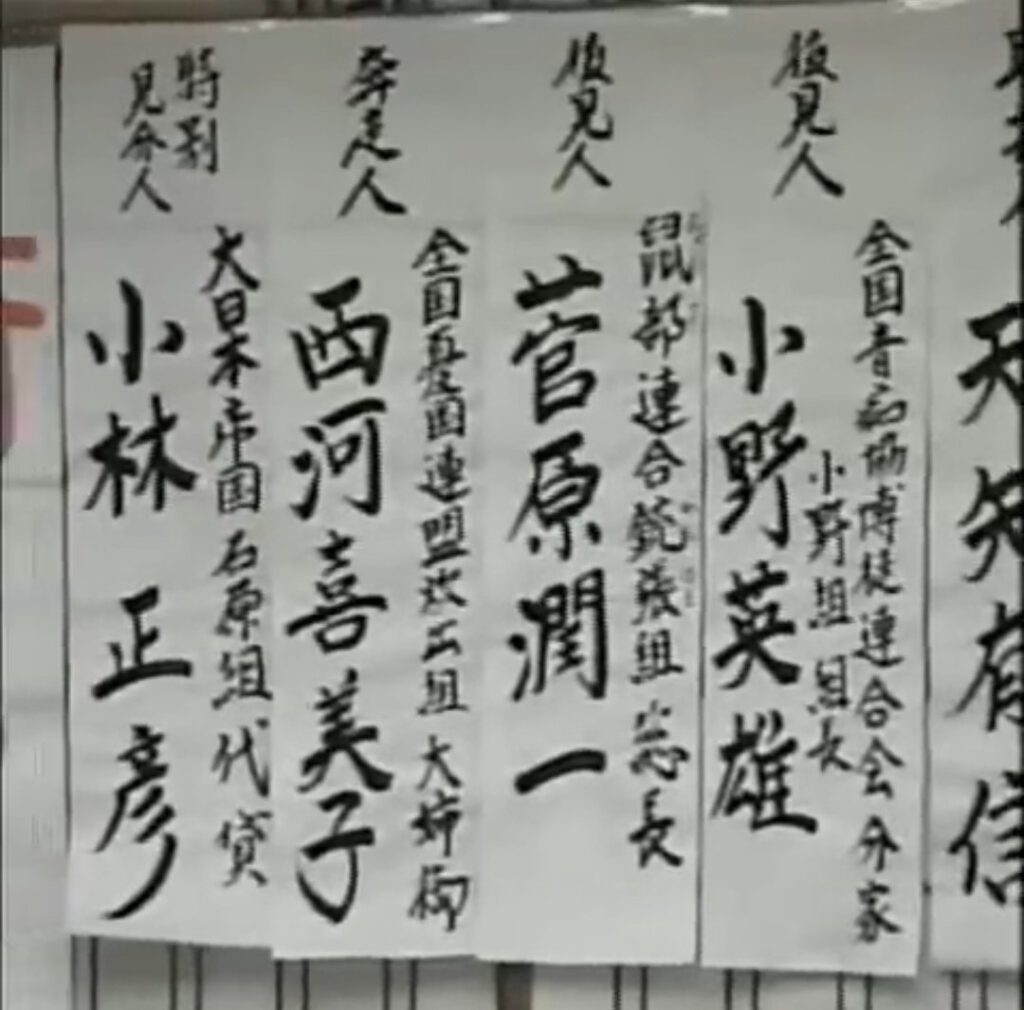 天知有信
後見人
全国青和協博徒連合会 分家
小野組 組長
小野英雄
後見人
鼠部連合銃張組 総長
菅原潤一
奔走人
全国憂国連盟 組 大姉御
西河喜美子
特別
見分人
大日本帝国 石原組代貸
小林 正彦